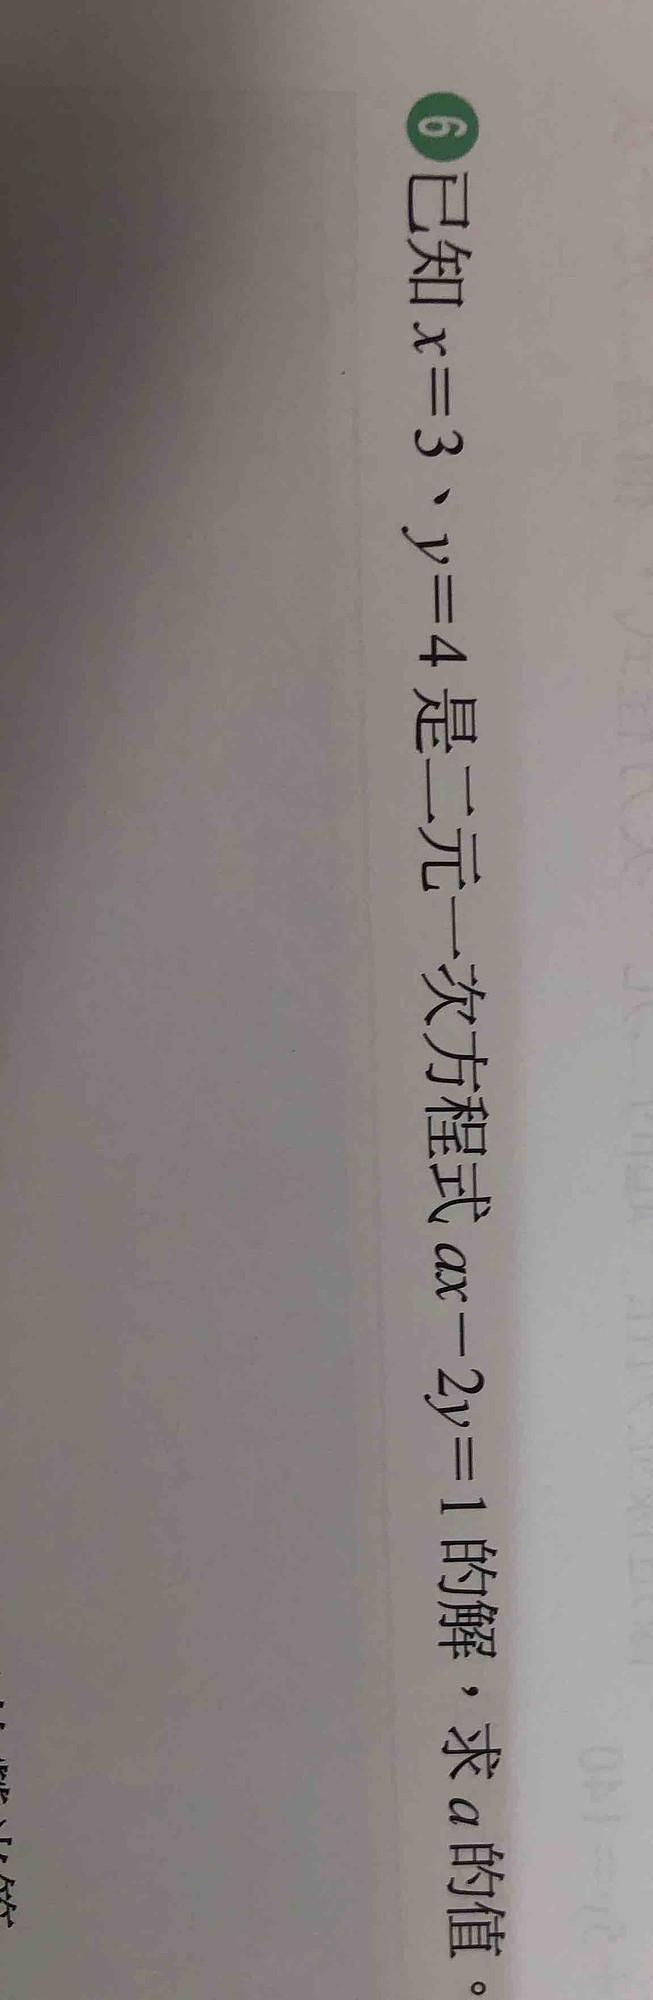 6 已知 x=3、y=4 是二元一次方程式 ax-2y=1 的解，求 a 的值。